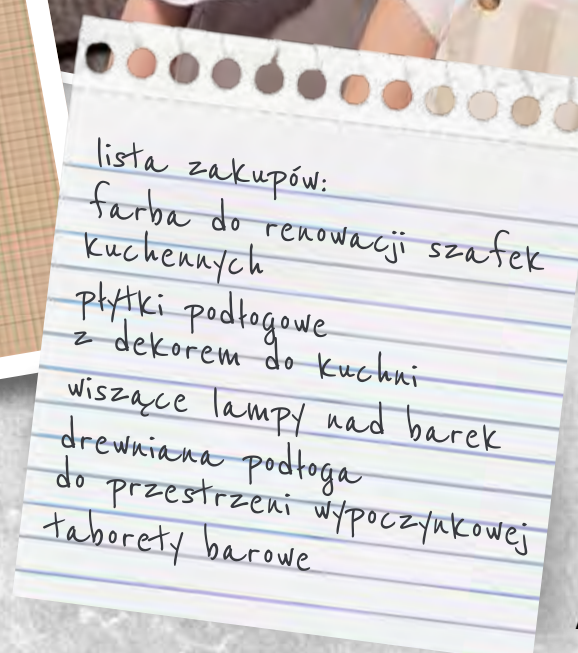 lista zakupów:
farba do renowacji szafek
kuchennych
płytki podłogowe
z dekorem do kuchni
wiszące lampy nad barek
drewniana podłoga
do przestrzeni wypoczynkowej
taborety barowe